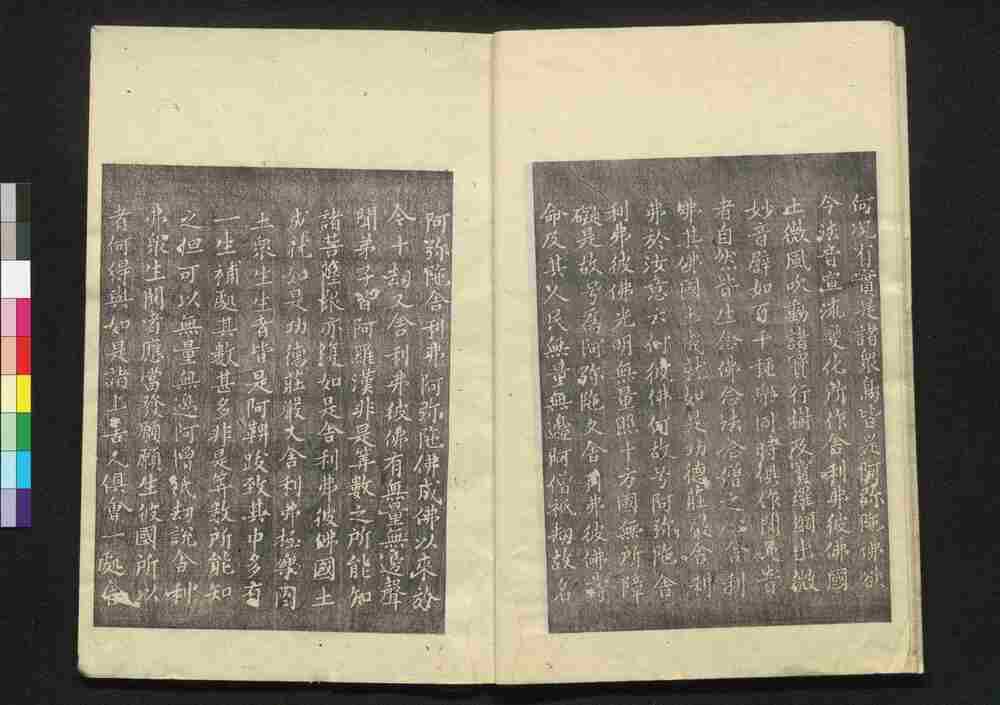 何況有實是諸衆鳥皆是阿弥陁佛欲
令法音宣流變化所作舍利弗彼佛國
土微風吹動諸寶行樹及寶羅網出微
妙音辟如百千種樂同時俱作聞是音
者自然皆生念佛念法念僧之 舍利
弗其佛國土成就如是功德莊嚴舍利
弗於汝意云何彼佛何故号阿弥陁舍
利弗彼佛光明無量照十方國無所障
礙是故号爲阿弥陁又舍利弗彼佛壽
命及其人民無量無邊阿僧祇劫故名
阿弥陁舍利弗阿弥陁佛成佛以來於
今十劫又舍利弗彼佛有無量無邊聲
聞弟子皆阿羅漢非是筭數之所能知
諸菩薩衆亦復如是舍利弗彼佛國土
成就如是功德莊嚴又舍利弗極樂國
土衆生生者皆是阿鞞跋致其中多有
一生補處其數甚多非是筭數所能知
之但可以無量無邊阿僧祇劫說舍利
弗衆生聞者應當發願願生彼國所以
者何得與如是諸上善人俱會一處舍